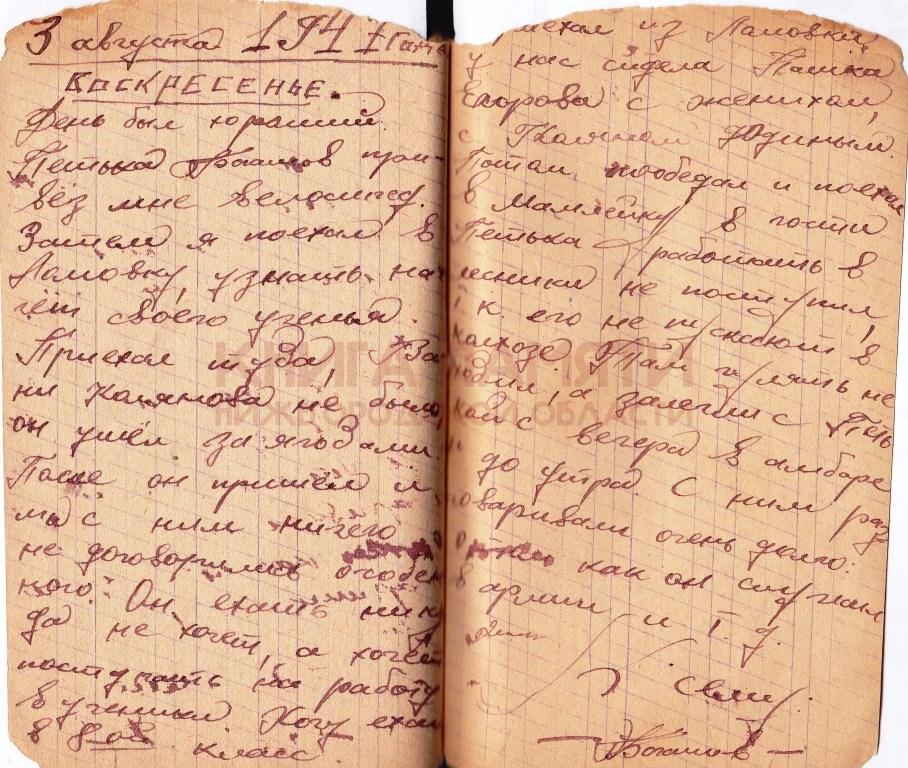 3 августа 1941 года
ВОСКРЕСЕНЬЕ.
День был хороший.
Петька при-
вёз мне велосипед.
Затем я поехал в
Ламовку, узнать на-
чёт своего ученья.
Приехал туда,
ни Калянова не было,
он ушёл за ягодами.
После он пришёл и
мы с ним ничего
не договорились особен
ного. Он ехать ник
да не хочет, а хочет
поступать на работу
в ученики. Хочу ехать
в 8-ой класс
Приехал из Ламовки,
у нас сидела Пашка
Егорова с женихом,
с Юдиным.
Потом пообедал и поехал
в Мамлейку в гости
Петька работать в
лесники не поступил,
т к его не пускают в
колхозе. Там гулять не
ходил, а залегли с Петь
кой с вечера в амбаре
и до утра. С ним раз
говаривали очень долго:
о том как он служил
в армии и т. д.
КНИГА ПАМЯТИ
НИЖЕГОРОДСКОЙ ОБЛАСТИ